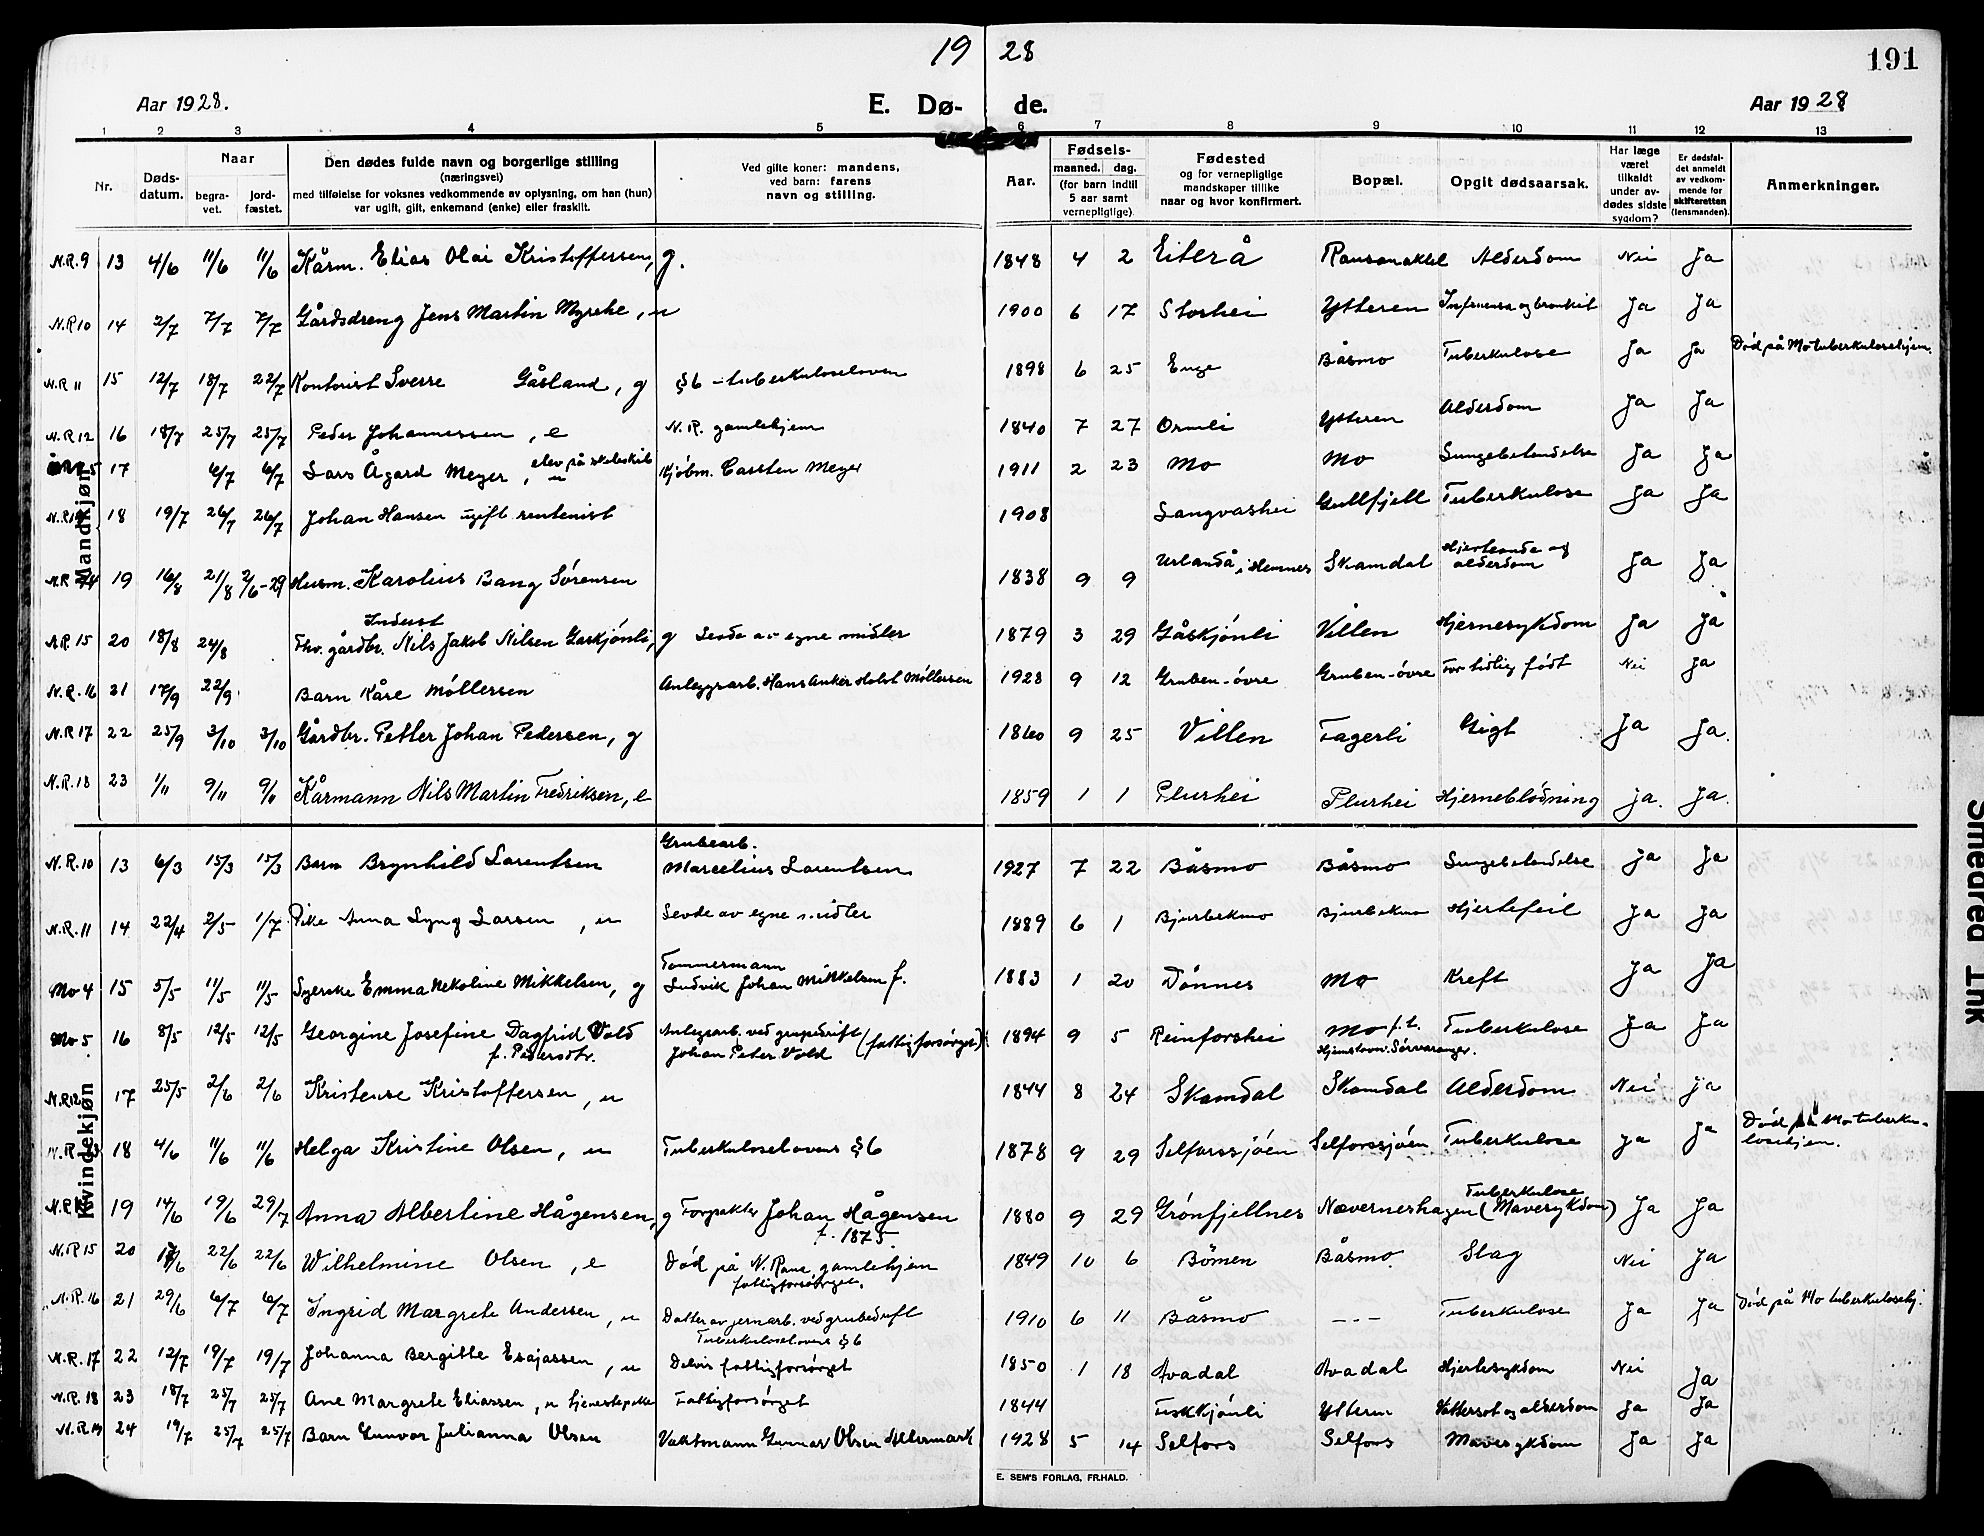 19 28
191
Aar 1928. E. Dø- de. Aar 1928
1 2 3 4 5 6 7 8 9 10 11 12 13
Nr. Døds-datum. Naar begra-vet. jord-fæstet. Den dødes fulde navn og borgerlige stilling (næringsvei) med tilføielse for voksnes vedkommende av oplysning, om han (hun) var ugift, gift, enkemand (enke) eller fraskilt. Ved gifte koner: mandens, ved barn: farens navn og stilling. Aar. Fødsels- maaned. dag. (for barn indtil 5 aar samt vernepligtige) Fødested og for vernepligtige mandskaper tillike naar og hvor konfirmert. Bopæl. Opgit dødsaarsak. Har læge været tilkaldt under av-dødes sidste sygdom? Er dødsfal-det anmeldt av vedkom-mende for skifteretten (lensmanden). Anmerkninger.
Mandkjøn
N.R.9 13 4/6 11/6 11/6 Kårm. Elias Olai Kristoffersen, g. 1848 4 2 Eiterå Alderdom Nei Ja
N.R10 14 2/7 7/7 7/7 Gårdsdreng Jens Martin Myrehe, u 1900 6 17 Storhei Ytteren Influensa og bronkit Ja Ja
N.R 11 15 12/7 18/7 22/7 Kontorist Sverre Gåsland, g §6 - tuberkuloseloven 1898 6 25 Enge Båsmo Tuberkulose Ja Ja Død på Mo tuberkulosehjem.
N.R 12 16 18/7 25/7 25/7 Peder Johannessen, e N.R. gamlehjem 1840 7 27 Ormli Ytteren Alderdom Ja Ja
17 6/7 6/7 Lars Ågard Meyer, elev på skoleskib u Kjøbm. Carsten Meyer 1911 2 23 Mo Mo Lungebetendelse Ja Ja
18 19/7 26/7 26/7 Johan Hansen ugift rentenist 1908 Langvashei Gullfjell Tuberkulose Ja Ja
19 16/8 21/8 2/6-29 Husm. Karolius Bang Sørensen 1838 9 9 Urlandå i Hemnes Skamdal Hjerteonde og alderdom Ja Ja
N.R.15 20 18/8 24/8 Inderst Fhv. gårdbr. Nils Jakob Nilsen Gaskjønli, g Levde av egne midler 1879 3 29 Gåskjønli Villen Hjernesykdom Ja Ja
N.R.16 21 17/9 22/9 Barn Kåre Møllersen Anleggsarb. Hans Anker Holst Møllersen 1928 9 12 Gruben-øvre Gruben-øvre For tidlig født Nei Ja
N.R 17 22 25/9 3/10 3/10 Gårdbr. Petter Johan Pedersen, g 1860 9 25 Villen Fagerli Gigt Ja Ja.
N.R.18 23 1/11 9/11 9/11 Kårmann Nils Martin Fredriksen, e 1859 1 1 Plurhei Plurhei Hjerneblødning Ja. Ja.
Kvindekjøn
N.R.10 13 6/3 15/3 15/3 Barn Brynhild Larentsen Grubearb. Marcelius Larentsen 1927 7 22 Båsmo Båsmo Lungebetendelse Ja Ja
N.R.11 14 22/4 2/5 1/7 Pike Anna Lyng Larsen, u Levde av egne midler 1889 6 1 Bjurbekmo Bjurbekmo Hjertefeil Ja Ja
Mo 4 15 5/5 11/5 11/5 Syerske Emma Nekoline Mikkelsen, g Tømmermann Ludvik Johan Mikkelsen f. 1883 1 20 Dønnes Mo Kreft Ja Ja
Mo 5 16 8/5 12/5 12/5 Georgine Josefine Dagfrid Vold f. Pedersdtr. Anlegsarb. ved grubedrift (fattigforsørget) Johan Peter Vold 1894 9 5 Reinforshei Mo f.t. Hjemstavn Sørvaranger. Tuberkulose Ja Ja
N.R12 17 25/5 2/6 2/6 Kristense Kristoffersen, u 1844 8 24 Skamdal Skamdal Alderdom Nei Ja
18 4/6 11/6 11/6 Helga Kristine Olsen, u Tuberkuloselovens §6 1878 9 29 Selforssjøen Selforssjøen Tuberkulose Ja Ja Død på Mo tuberku-losehjem.
19 14/6 19/6 29/7 Anna Albertine Hågensen, g Forpakter Johan Hågensen f. 1875. 1880 9 29 Grønfjellnes Næverneshagen Tuberkulose (Mavesykdom) Ja Ja
N.R 15 20 22/6 22/6 Wilhelmine Olsen, e Død på N. Rana gamlehjem fattigforsørget. 1849 10 6 Bømen Båsmo. Slag Nei Ja
N.R.16 21 29/6 6/7 6/7 Ingrid Margrete Andersen, u Datter av jernarb. ved grubedrift Tuberkuloselovens §6 1910 6 11 Båsmo - - - Tuberkulose Ja Ja Død på Mo tuberkulosehj.
N.R.17 22 12/7 19/7 19/7 Johanna Bergitte Esajassen, u Delvis fattigforsørget 1850 1 18 Avadal Avadal Hjertesykdom Nei Ja
N.R.18 23 18/7 25/7 25/7 Ane Margrete Eliassen, u tjenestepike Fattigforsørget 1844 Fiskkjønli Ytteren Vattersot og alderdom Ja Ja
N.R19 24 19/7 25/7 25/7 Barn Gunvor Julianna Olsen Vaktmann Gunnar Olsen Altermark 1928 5 14 Selfors Selfors Mavesykdom Ja Ja
E. SEM'S FORLAG, FR.HALD.
Smeared Ink